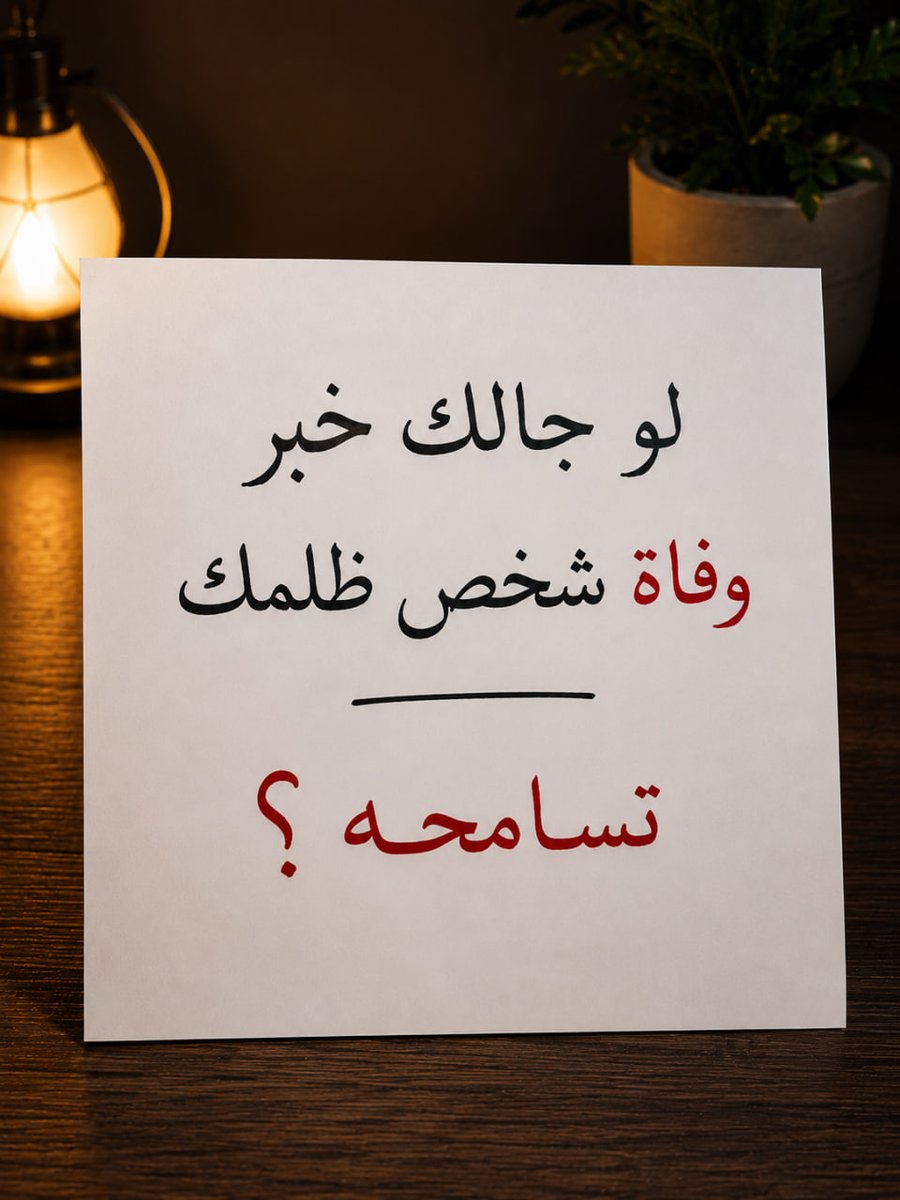 لو جالك خبر
وفاة شخص ظلمك
تسامحه ؟